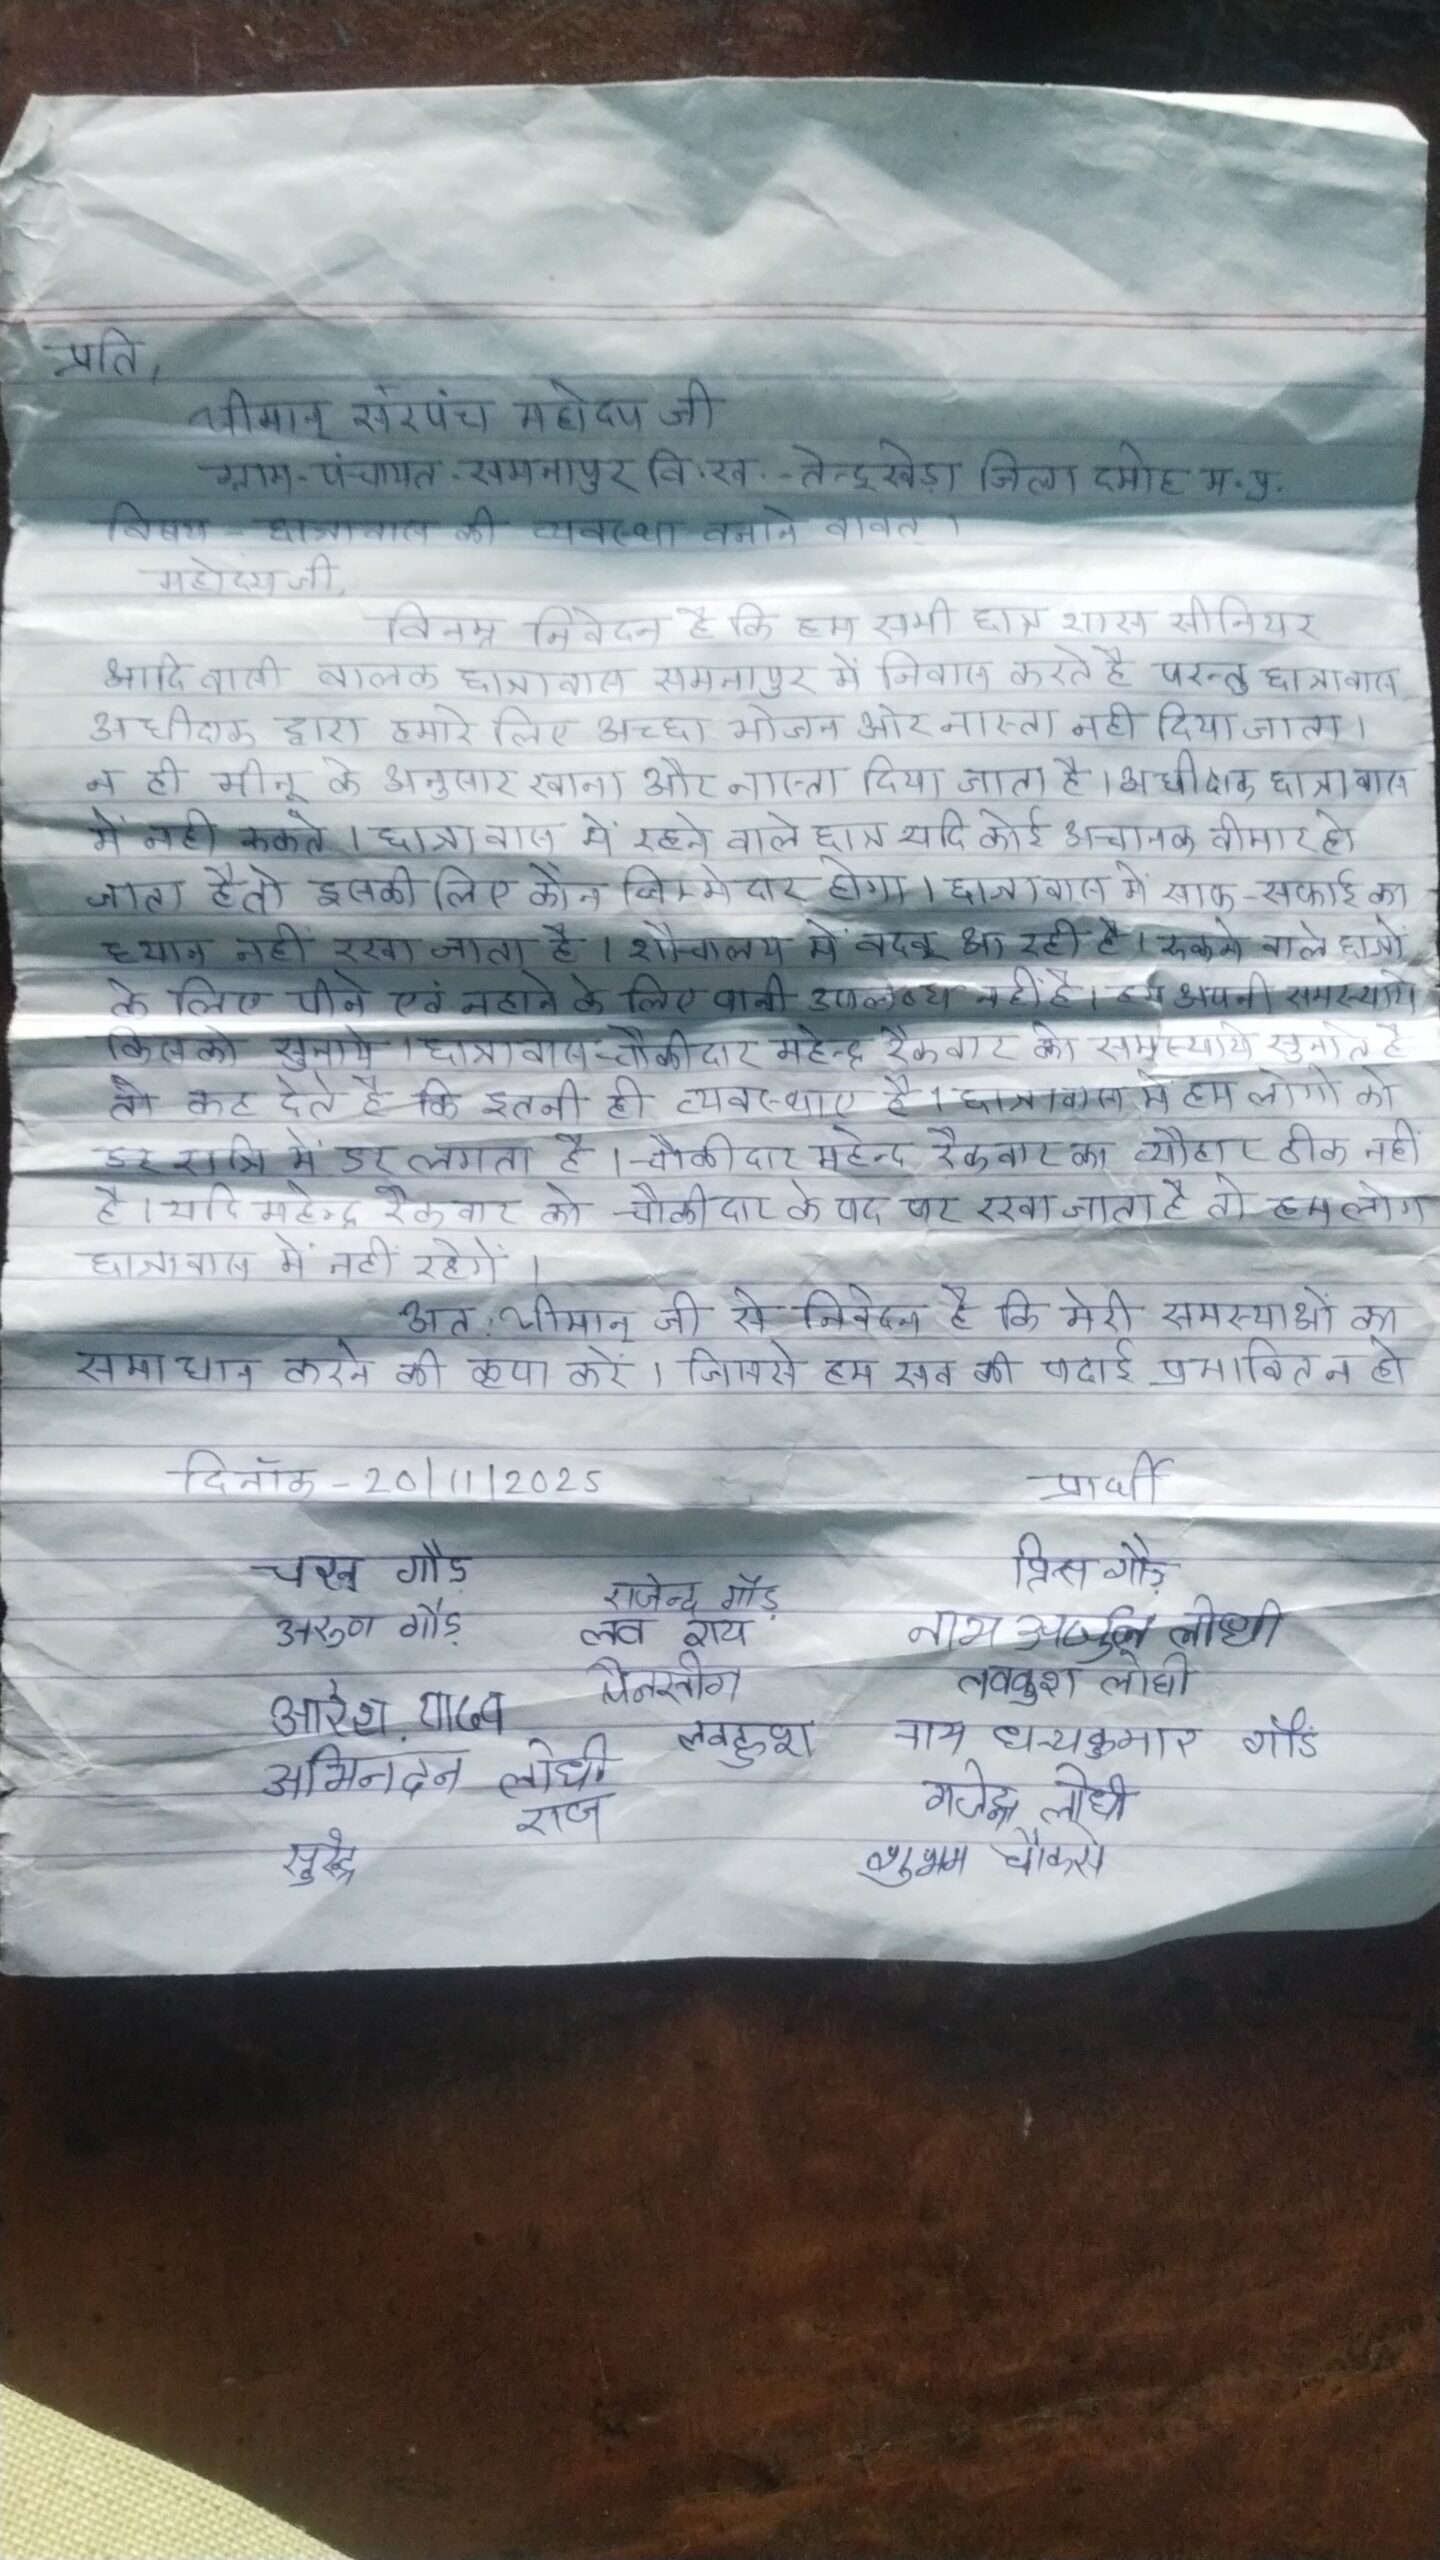 प्रति,
श्रीमान् संरपंच महोदय जी
ग्राम-पंचायत-समनापुर वि.ख.-तेन्दूखेड़ा जिला दमोह म.प्र.
विषय - छात्रावास की व्यवस्था बनाने वावत् ।
महोदय जी,
विनम्र निवेदन है कि हम सभी छात्र शास सीनियर
आदिवासी बालक छात्रावास समनापुर में निवास करते है परन्तु छात्रावास
अधीक्षक द्वारा हमारे लिए अच्छा भोजन ओर नास्ता नही दिया जाता ।
न ही मीनू के अनुसार खाना और नास्ता दिया जाता है । अधीक्षक छात्रावास
में नही रुकते । छात्रावास में रहने वाले छात्र यदि कोई अचानक वीमार हो
जाता है तो इसकी लिए कौन जिम्मेदार होगा । छात्रावास में साफ-सफाई का
ध्यान नहीं रखा जाता है । शौचालय में वदवू आ रही है । रुकने वाले छात्रों
के लिए पीने एवं नहाने के लिए पानी उपलब्ध नहीं है । हम अपनी समस्याये
किसको सुनाये । छात्रावास-चौकीदार महेन्द्र रैकवार को समस्याये सुनाते है
तो कह देते है कि इतनी ही व्यवस्थाए है । छात्रावास मे हम लोगो को
डर रात्रि में डर लगता है । चौकीदार महेन्द्र रैकवार का व्यौहार ठीक नहीं
है । यदि महेन्द्र रैकवार को चौकीदार के पद पर रखा जाता है तो हम लोग
छात्रावास में नहीं रहेगें ।
अतः श्रीमान् जी से निवेदन है कि मेरी समस्याओं का
समाधान करने की कृपा करें । जिससे हम सव की पढाई प्रभावित न हो
दिनॉक - 20/11/2025 प्रार्थी
गौड़ प्रिन्स गौड़
राजेन्द्र गौड़
अरुण गौड़ लव राय नाम अर्जुन लोधी
लवकुश लोधी
यादव लवकुश नाम धन्यकुमार गौंड
अभिनदन लोधी गजेन्द्र लोधी
राज
सुरेन्द्र शुभम चौकसे